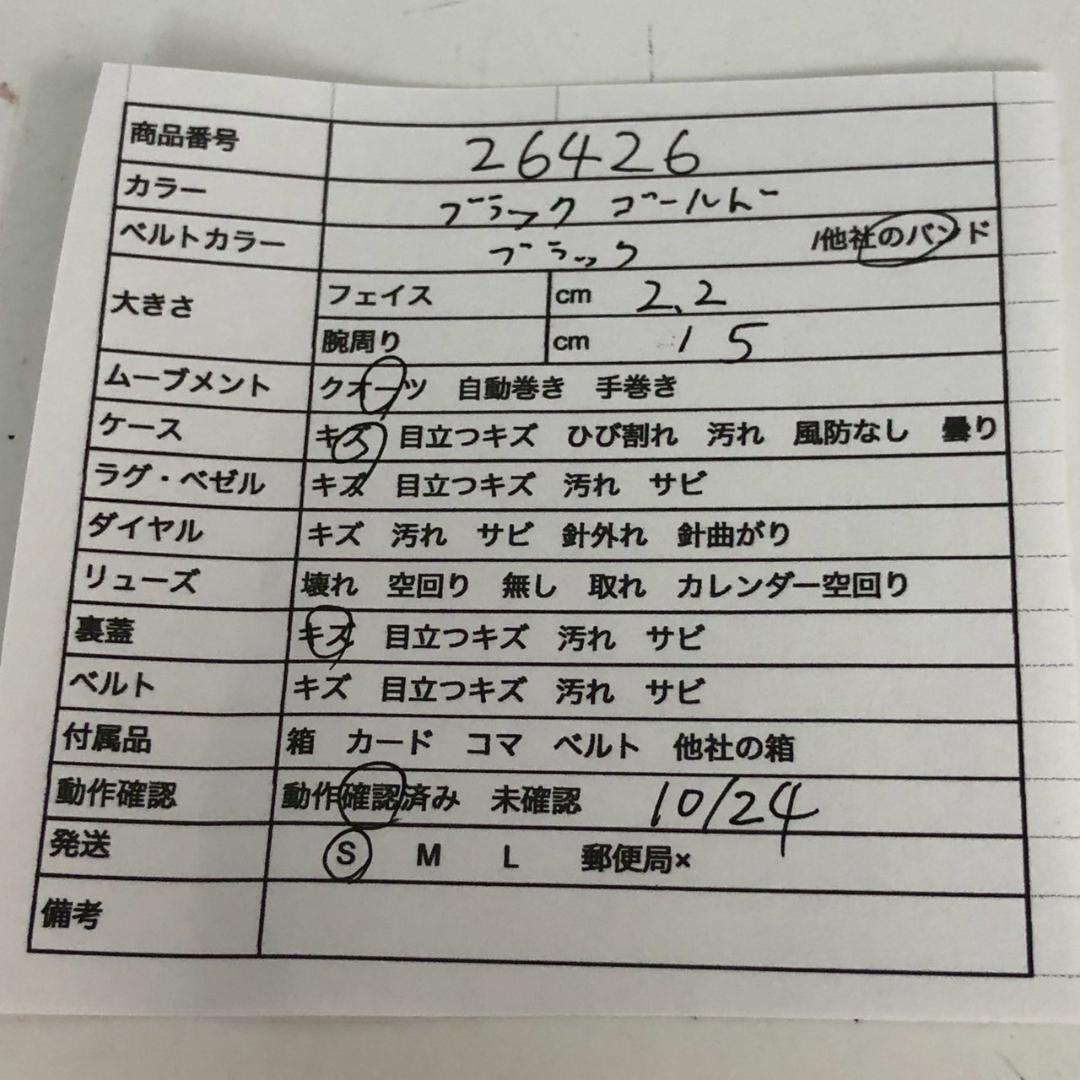 商品番号 26426
カラー ブラック ゴールド
ベルトカラー ブラック /他社のバンド
大きさ フェイス cm 2.2
腕周り cm 15
ムーブメント クオーツ 自動巻き 手巻き
ケース キズ 目立つキズ ひび割れ 汚れ 風防なし 曇り
ラグ・ベゼル キズ 目立つキズ 汚れ サビ
ダイヤル キズ 汚れ サビ 針外れ 針曲がり
リューズ 壊れ 空回り 無し 取れ カレンダー空回り
裏蓋 キズ 目立つキズ 汚れ サビ
ベルト キズ 目立つキズ 汚れ サビ
付属品 箱 カード コマ ベルト 他社の箱
動作確認 動作確認済み 未確認 10/24
発送 S M L 郵便局×
備考